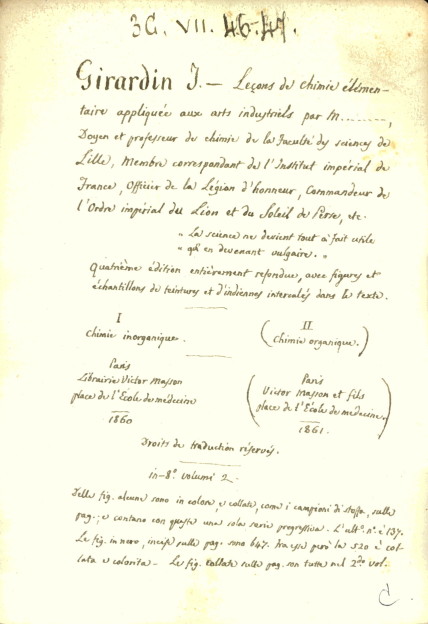 3G. VII. 46-47.
Girardin J. — Leçons de chimie élémen-
taire appliquée aux arts industriels par M.........,
Doyen et professeur de chimie de la Faculté des sciences de
Lille, Membre correspondant de l'Institut impérial de
France, Officier de la Légion d'honneur, Commandeur de
l'Ordre impérial du Lion et du Soleil de Perse, etc.
" La science ne devient tout à fait utile
" qu'en devenant vulgaire. "
Quatrième édition entièrement refondue, avec figures et
échantillons de teintures et d'indiennes intercalés dans le texte.
I
Chimie inorganique.
II
(Chimie organique.)
Paris
Librairie Victor Masson
place de l'École de médecine
1860
(Paris
Victor Masson et fils
place de l'École de médecine.)
1861.
Droits de traduction réservés.
in-8.° volumi 2.
Delle fig. alcune sono in colore, e collate, come i campioni di stoffa, sulle
pag., e contano con queste una sola serie progressiva. L'ult.° n.° è 137.
Le fig. in nero, incise sulle pag. sono 647. fra esse però la 520 è col-
lata e colorita. - Le fig. collate sulle pag. son tutte nel 2.do vol.
C